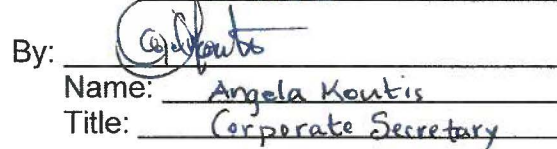 By:
Name: Angela Koutis
Title: Corporate Secretary